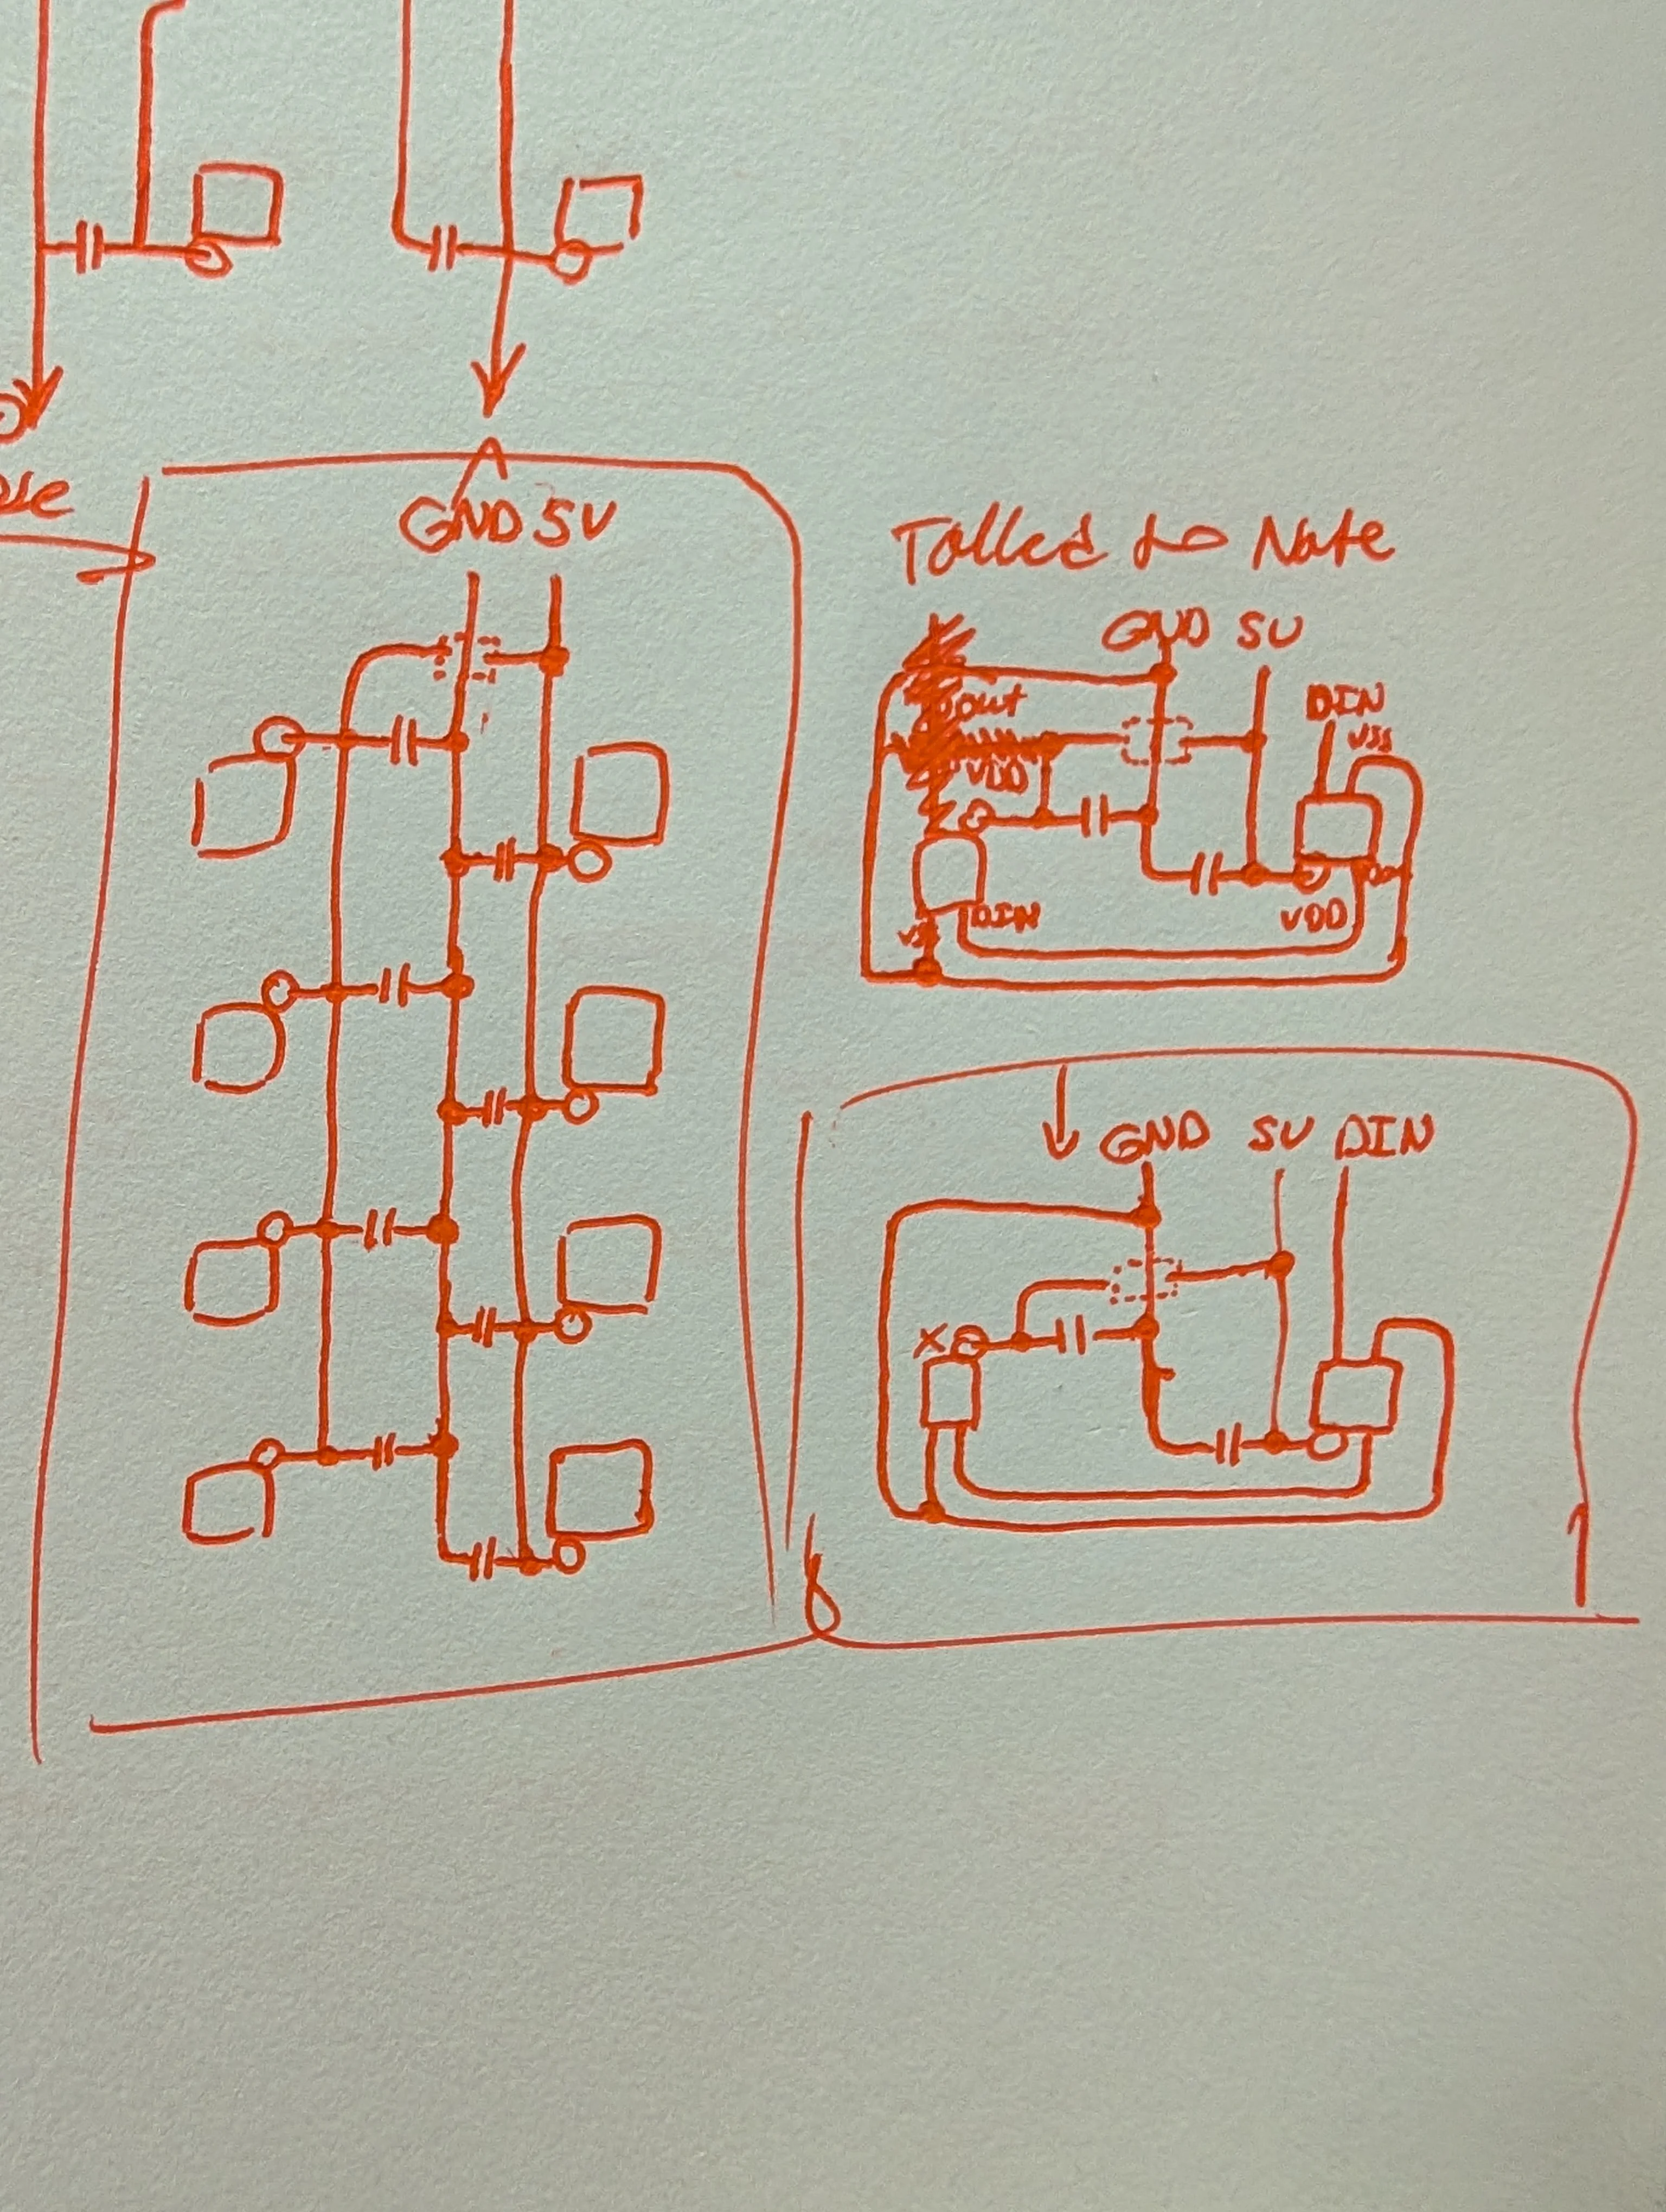 GND 5V
Talked to Nate
GND 5V
DIN
VSS
out
VDD
DIN
VDD
VSS
GND 5V DIN
X